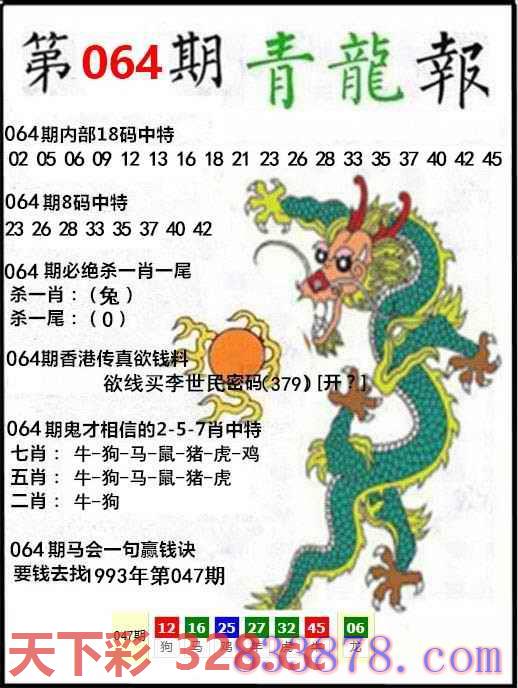 第064期青龍報
064期内部18码中特
02 05 06 09 12 13 16 18 21 23 26 28 33 35 37 40 42 45
064期8码中特
23 26 28 33 35 37 40 42
064期必绝杀一肖一尾
杀一肖：（兔）
杀一尾：（0）
064期香港传真欲钱料
欲线买李世民密码(379)[开？]
064期鬼才相信的2-5-7肖中特
七肖： 牛-狗-马-鼠-猪-虎-鸡
五肖： 牛-狗-马-鼠-猪-虎
二肖： 牛-狗
064期马会一句赢钱诀
要钱去找1993年第047期
047期 12 16 25 27 32 45 06
狗 马 鸡 羊 虎 牛 龙
天下彩
328333878.com